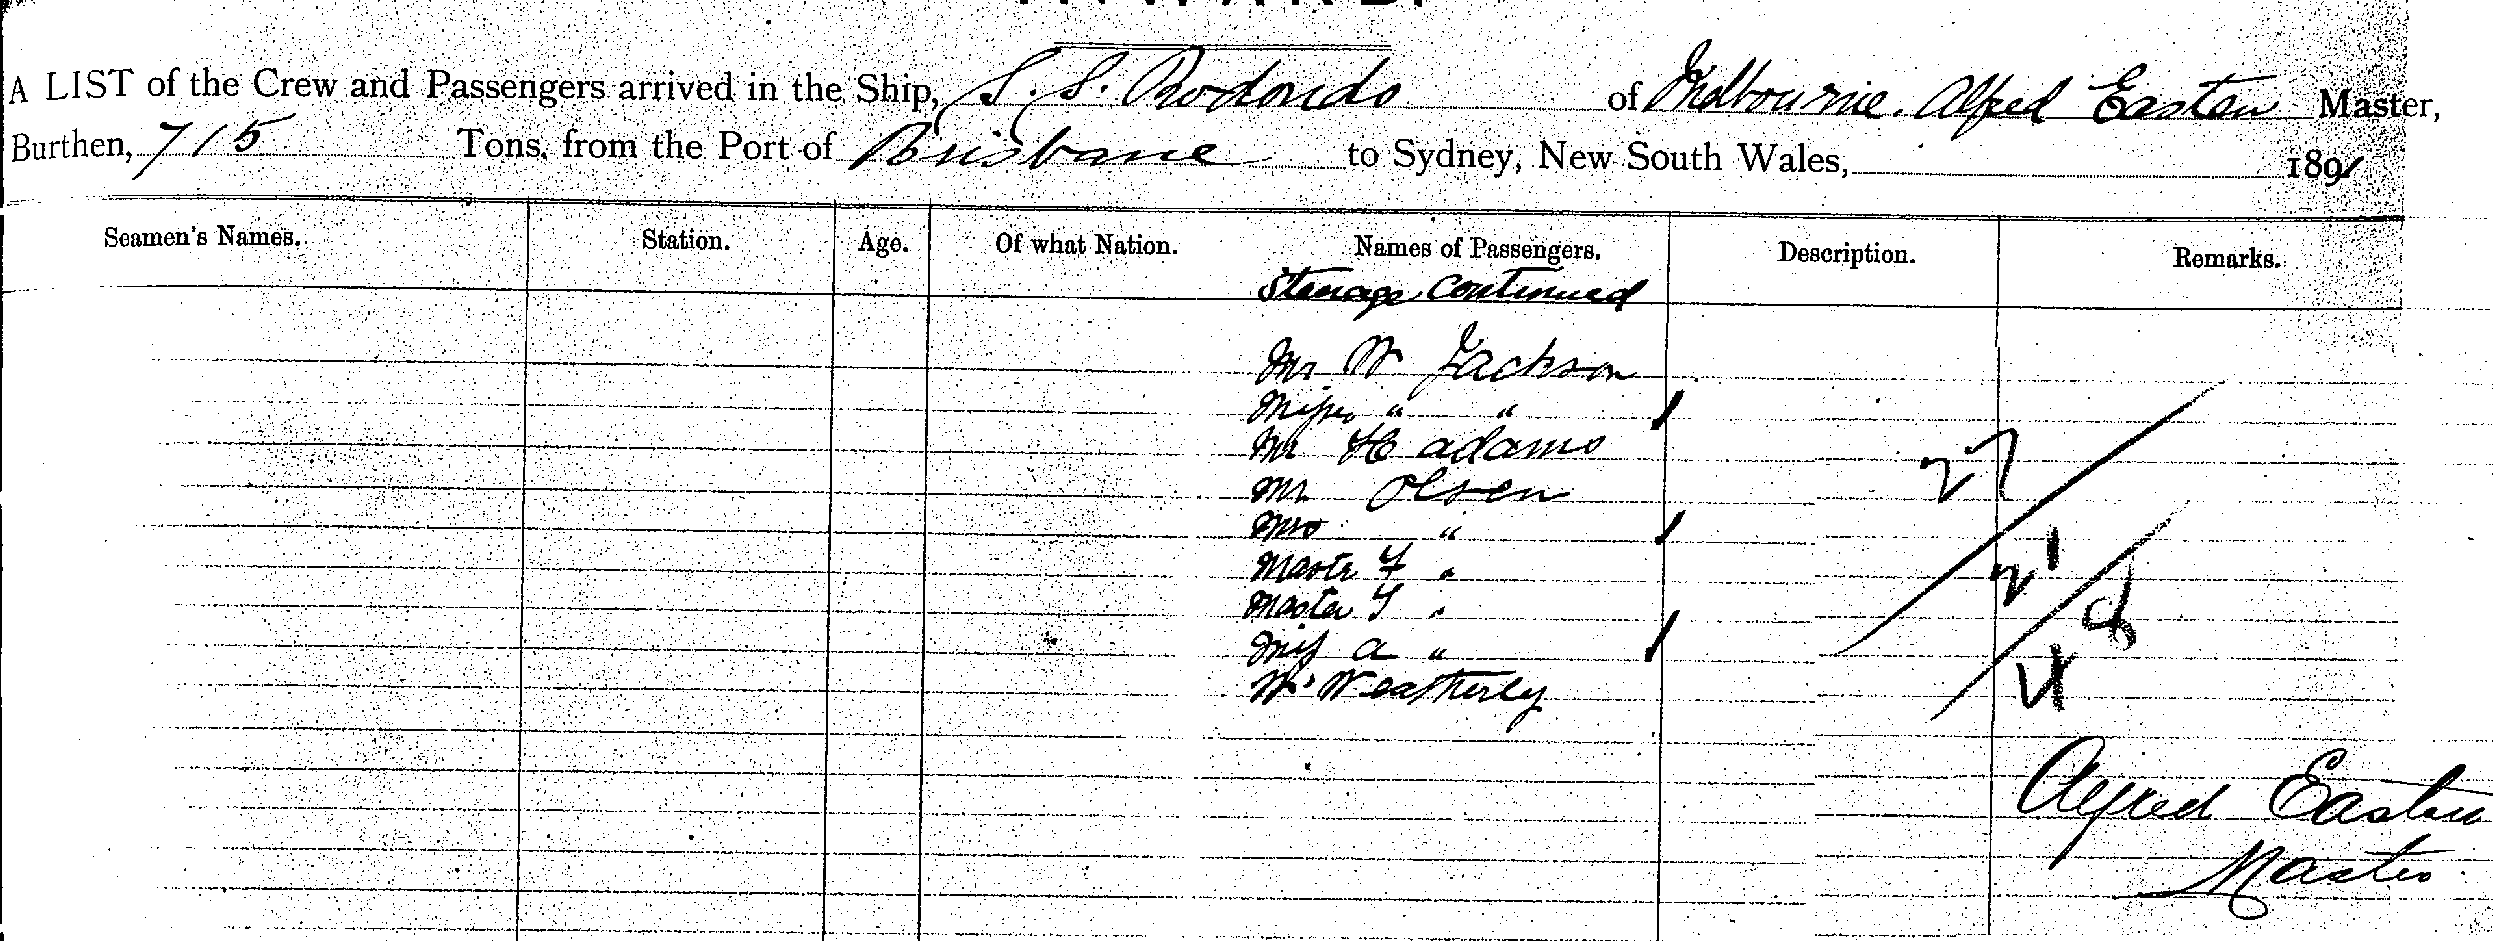 A LIST of the Crew and Passengers arrived in the Ship, S. S. Rodondo of Melbourne. Alfred Easton Master,
Burthen, 715 Tons, from the Port of Brisbane to Sydney, New South Wales, 1891
Seamen's Names. Station. Age. Of what Nation. Names of Passengers. Description. Remarks.
Steerage Continued
Mr W Jackson
" "
Mr H Adams
Mr Olsen
Mrs "
Master F "
Master Y "
Miss A "
W. Weatherly
27
21
4
Alfred Easton
Master